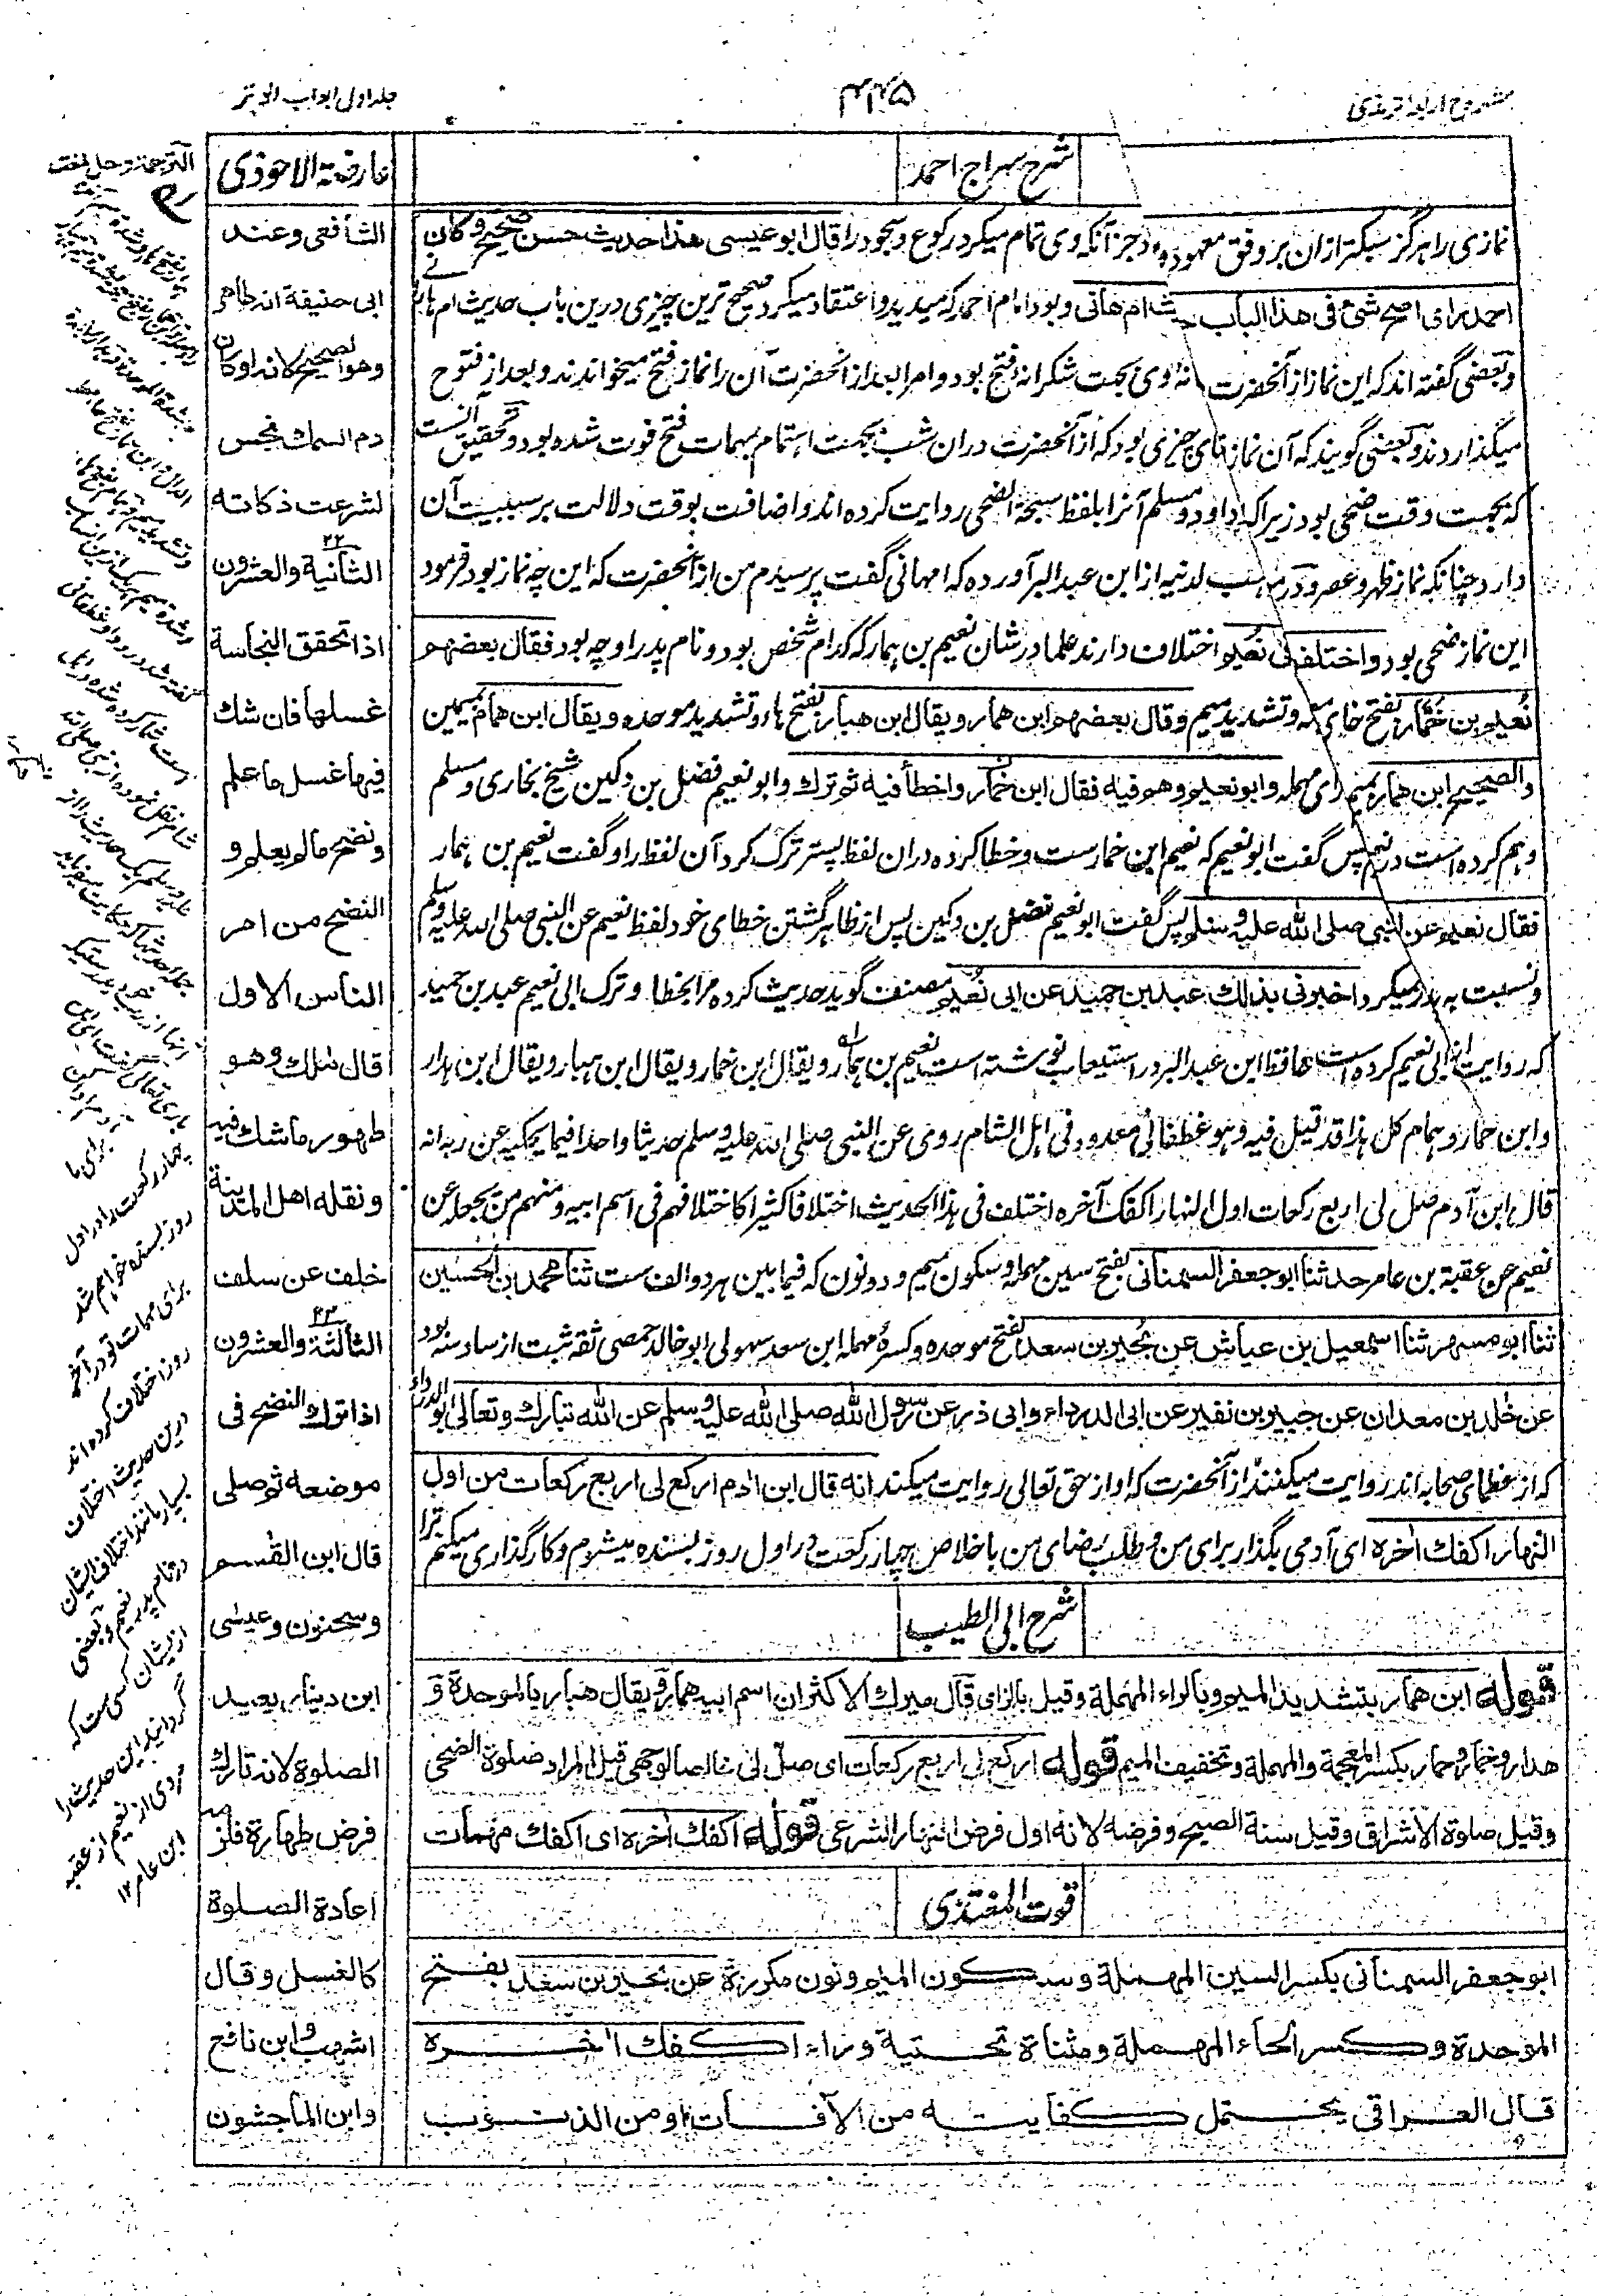 شروح اربعه ترمذی
۴۴۵
جلد اول ابواب الوتر
شرح سراج احمد
نمازی را هرگز سبکتر ازان بر وفق معهود جز آنکه وی تمام میکرد رکوع و سجود را قال ابو عیسی هذا حدیث حسن صحیح وکان
احمد رای اصح شئ فی هذا الباب حدیث ام هانی و بود امام احمد که میدید و اعتقاد میکرد صحیح ترین چیزی درین باب حدیث ام هانی
و بعضی گفته اند که این نماز از آنحضرت بجهت شکرانه فتح بود و امرا بعد از آنحضرت آن را نماز فتح میخواندند و بعد از فتوح
میگذاردند و بعضی گویند که آن نماز بود که از آنحضرت دران شب بجهت اهتمام بمهمات فتح فوت شده بود و تحقیق آنست
که بجهت وقت ضحی بود زیرا که ابو داود و مسلم آنرا بلفظ سبحة الضحی روایت کرده اند و اضافت بوقت دلالت بر سببیت آن
دارد چنانکه نماز ظهر و عصر و در مواهب لدنیه از ابن عبد البر آورده که امهانی گفت پرسیدم من از آنحضرت که این چه نماز بود فرمود
این نماز ضحی بود واختلف فی نعیم اختلاف دارند علما در شان نعیم بن همار که کدام شخص بود و نام پدر او چه بود فقال بعضهم
نعیم بن خمار بفتح خای معجمه و تشدید میم وقال بعضهم ابن همار ویقال ابن هبار بفتح هاء و تشدید موحده ویقال ابن همام بمیمین
والصحیح ابن همار بمیم و رای مهمله وابو نعیم وهم فیه فقال ابن خمار واخطأ فیه ثم ترک وابو نعیم فضل بن دکین شیخ بخاری و مسلم
وهم کرده است در نعیم پس گفت ابو نعیم که نعیم ابن خمارست و خطا کرده دران لفظ پستر ترک کرد آن لفظ را و گفت نعیم بن همار
فقال نعیم عن النبی صلی الله علیه وسلم پس گفت ابو نعیم فضل بن دکین پس از ظاهر گشتن خطای خود لفظ نعیم عن النبی صلی الله علیه وسلم
و نسبت به پدر نمیکرد اخبرنی بذلك عبد بن حمید عن ابی نعیم مصنف گوید حدیث کرده مرا بخطا و ترک ابی نعیم عبد بن حمید
که روایت از ابی نعیم کرده است حافظ ابن عبد البر در استیعاب نوشته است نعیم بن همار ویقال ابن خمار ویقال ابن هبار ویقال ابن هدار
وابن حمار وهمام کل هذا قد قیل فیه وهو غطفانی معدود فی اهل الشام روی عن النبی صلی الله علیه وسلم حدیثا واحدا فیما یحکیه عن ربه انه
قال ابن آدم صل لی اربع رکعات اول النهار اکفک آخره اختلف فی هذا الحدیث اختلافا کثیرا کاختلافهم فی اسم ابیه ومنهم من یجعله عن
نعیم عن عقبة بن عامر حدثنا ابو جعفر السمنانی بفتح سین مهمله و سکون میم و دو نون که فیما بین هر دو الف ست ثنا محمد بن الحسین
ثنا ابو مسهر ثنا اسمعیل بن عیاش عن بحیر بن سعد بفتح موحده و کسره مهمله ابن سعد سحولی ابو خالد حمصی ثقه ثبت از سادسه بود
عن خلد بن معدان عن جبیر بن نفیر عن ابی الدرداء وابی ذر عن رسول الله صلی الله علیه وسلم عن الله تبارك وتعالی ابو الدرداء
که از عظمای صحابه اند روایت میکنند از آنحضرت که او از حق تعالی روایت میکند انه قال ابن ادم ارکع لی اربع رکعات من اول
النهار اکفك اخره ای آدمی بگذار برای من و طلب رضای من باخلاص چهار رکعت در اول روز بسنده میشوم و کارگذاری میکنم ترا
شرح ابی الطیب
قوله ابن همار بتشدید المیم وبالراء المهملة وقیل بالزای قال میرك الاکثر ان اسم ابیه همار ویقال هبار بالموحدة و
هدار وخمار وحمار بکسر المعجمة والمهملة وتخفیف المیم قوله ارکع لی اربع رکعات ای صل لی خالصا لوجهی قیل المراد صلوة الضحی
وقیل صلوة الاشراق وقیل سنة الصبح وفرضه لانه اول فرض النهار الشرعی قوله اکفك اخره ای اکفك مهمات
قوت المغتذی
ابو جعفر السمنانی بکسر السین المهملة وسکون المیم ونون مکررة عن بحیر بن سعد بفتح
الموحدة وکسر الحاء المهملة ومثناة تحتیة وراء اکفك اخره
قال العراقی یحتمل کفایته من الآفات او من الذنوب
عارضة الاحوذی
الشافعی وعند
ابی حنیفة انه طاهر
وهو الصحیح لانه لو کان
دم السمك نجس
لشرعت ذکاته
الثانیة والعشرون ۲۲
اذا تحقق النجاسة
غسلها فان شك
فیها غسل ما علم
ونضح ما لم یعلم و
النضح من امر
الناس الاول
قال ملك وهو
طهور ما شك فیه
ونقله اهل المدینة
خلف عن سلف
الثالثة والعشرون ۲۳
اذا ترك النضح فی
موضعه ثم صلی
قال ابن القسم
وسحنون وعیسی
ابن دینار یعید
الصلوة لانه تارك
فرض طهارة فلزمه
اعادة الصلوة
کالغسل وقال
اشهب وابن نافع
وابن الماجشون
الترجمة وحل لغت
چهار رکعت را در اول
روز بسنده خواهم شد
برای مهمات تو در آخر
روز اختلاف کرده اند
درین حدیث اختلاف
بسیار مانند اختلاف ایشان
در نام پدر نعیم و بعضی
از ایشان کسی ست که
گردانید این حدیث را
مروی از نعیم از عقبه
ابن عامر ۱۲